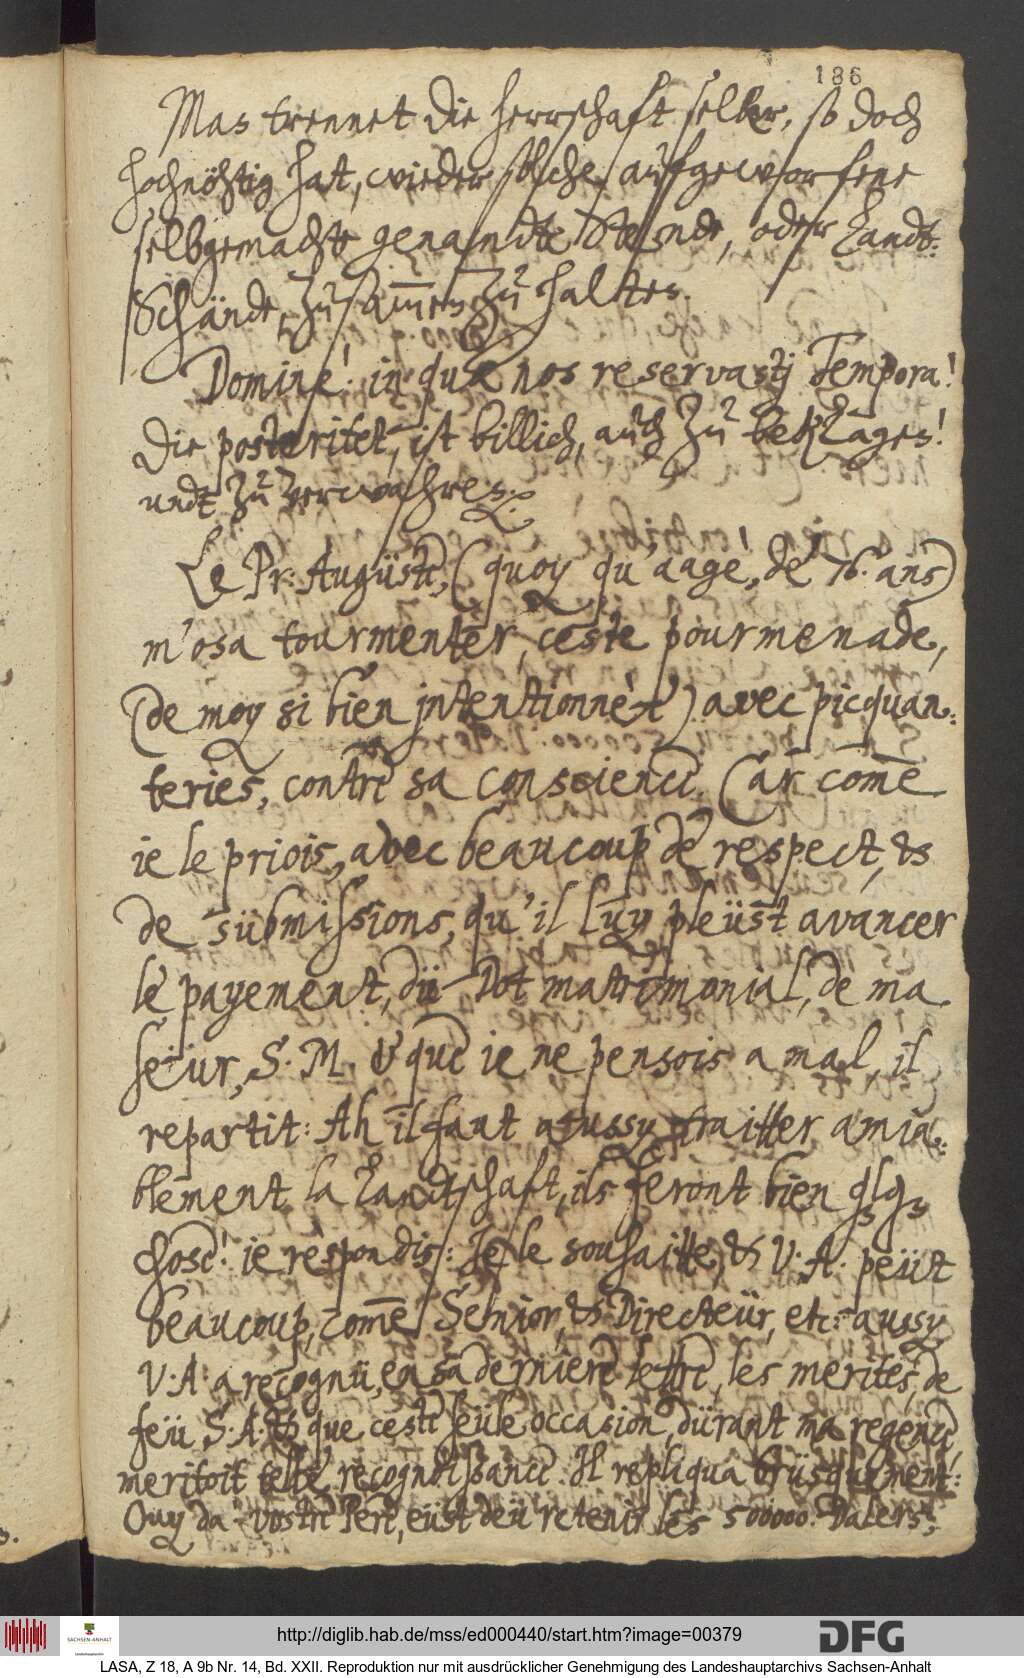 186
Mas trennet die herrschaft selber, so doch
hochnöhtig hat, wieder solche aufgeworfene
selbgemachte genandte Stende, oder Landt-
Schände, zusammen zu halten.
Domine! in quæ nos reservastj Tempora!
Die posteritet, ist billich, auch zu beklagen!
undt zu verwahren.
Le Pr: Augüste, (quoy qu'aagè, de 76. ans)
m'osa tourmenter, ceste pourmenade,
(de moy si bien jntentionnèe) avec picquan-
teries, contre sa conscience. Car com̄e
ie le priois, avec beaucoup de respect, &
de sübmissions, qu'il luy pleüst avancer
le payement, dü Dot matrimonial, de ma
seiur, S. M. & que ie ne pensois a mal, il
repartit: Ah il faut aussy traitter amia-
blement la Landtschaft, ils feront bien qlq
chose! ie respondis: Je le souhaitte, & V. A. peüt
beaucoup, com̄e Senior, & Directeür, etc: aussy
V. A. a recognü, en sa derniere lettre, les merites, de
feü S. A. & que ceste seüle occasion, dürant ma regence,
meritoit telle recognoissance. Il repliqua brüsquement:
Ouy da vostre Pere, eüst deü retenir les 500000. Dalers,
http://diglib.hab.de/mss/ed000440/start.htm?image=00379
DFG
SACHSEN-ANHALT
Landeshauptarchiv
LASA, Z 18, A 9b Nr. 14, Bd. XXII. Reproduktion nur mit ausdrücklicher Genehmigung des Landeshauptarchivs Sachsen-Anhalt